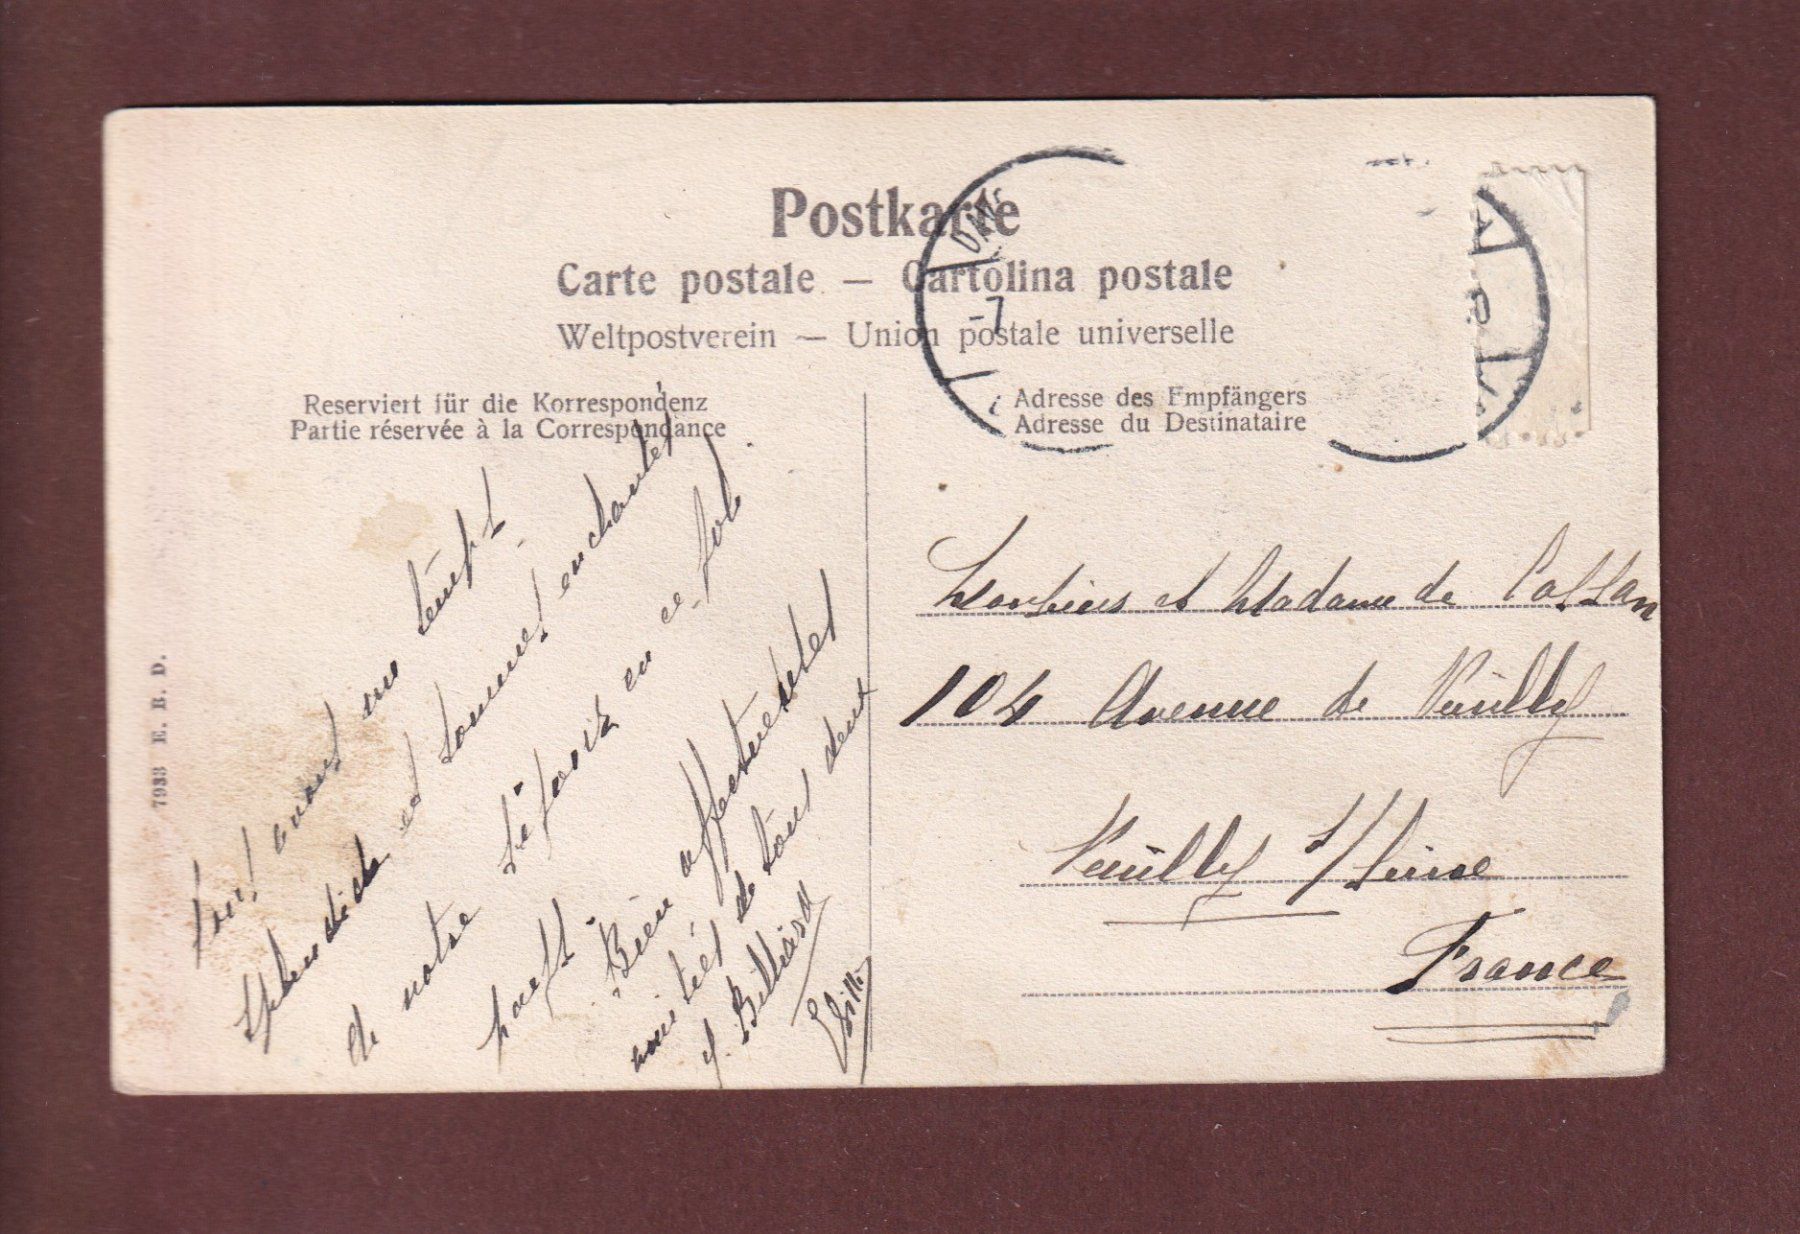 Postkarte
Carte postale — Cartolina postale
Weltpostverein — Union postale universelle
Reserviert für die Korrespondenz
Partie réservée à la Correspondance
Adresse des Empfängers
Adresse du Destinataire
-7
avons un temps
splendide et sommes enchantés
de notre séjour en ce joli
pays.
Bien affectueuses
amitiés de tous deux
Billiard
Monsieur et Madame de Cassan
104 Avenue de Neuilly
Neuilly s/Seine
France
7933 E. B. D.